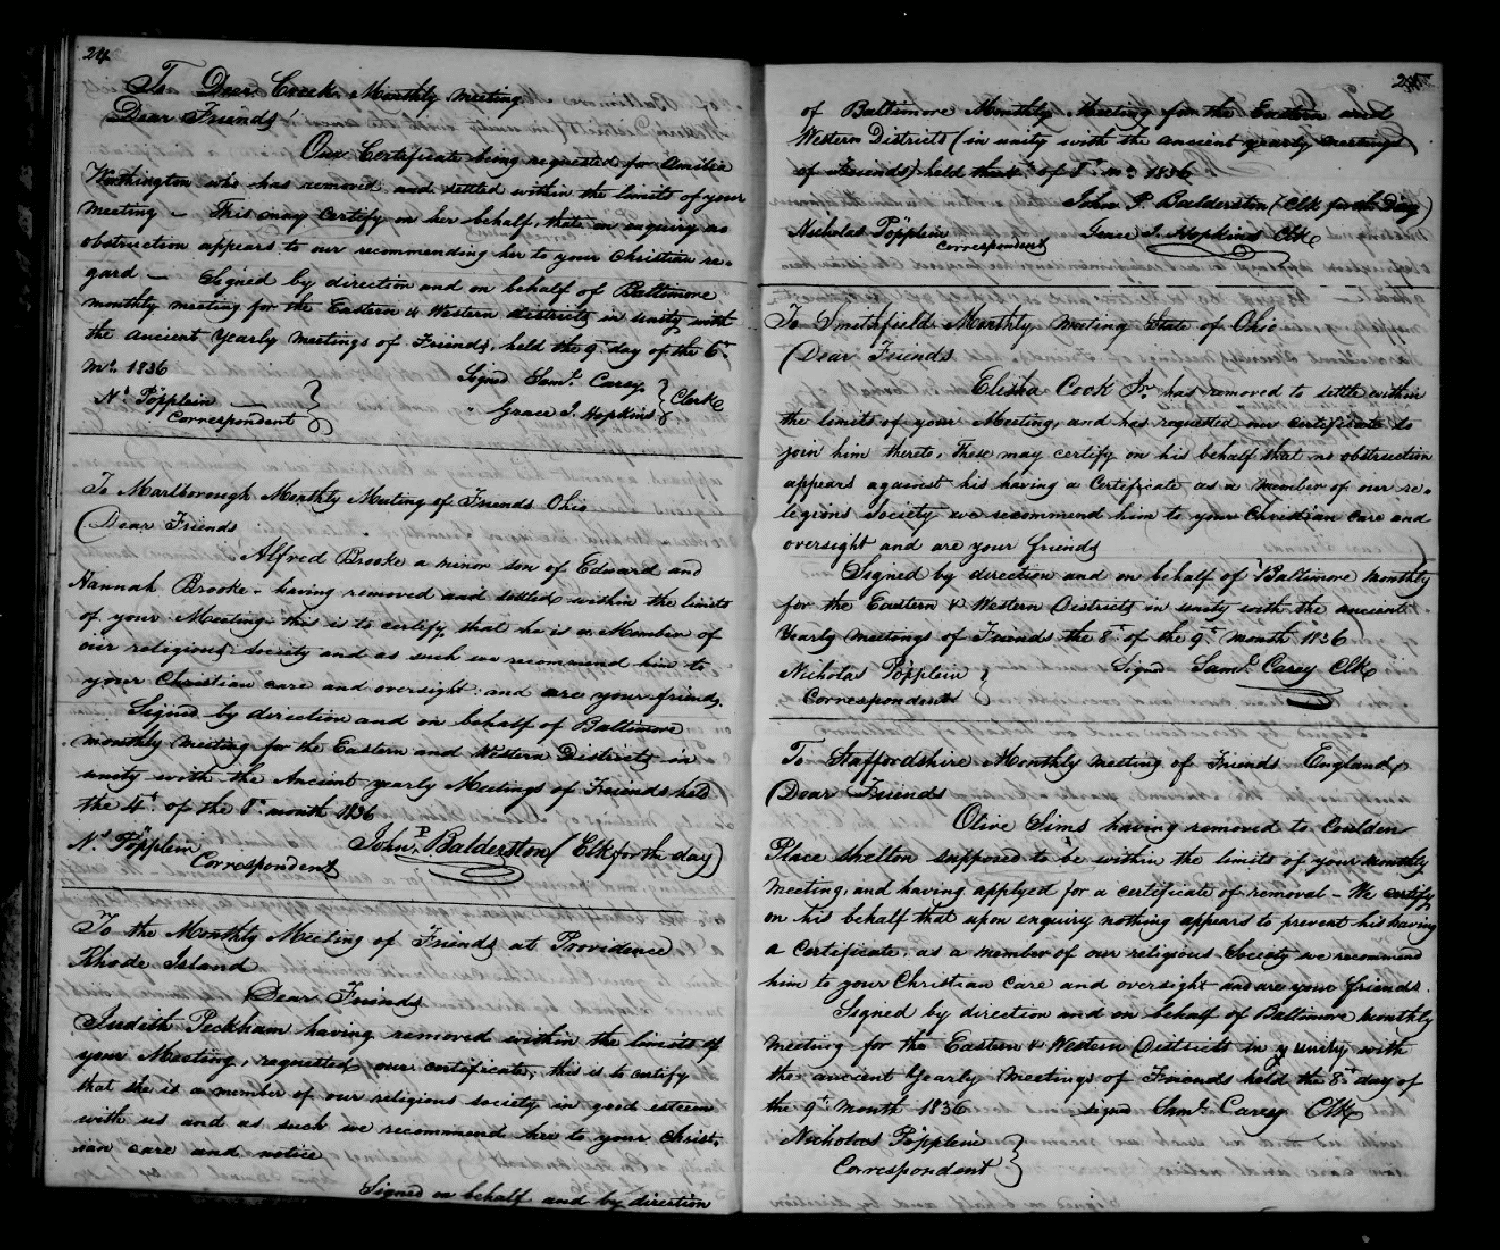 24
To Deer Creek Monthly Meeting
Dear Friends
Our Certificate being requested for Amelia
Worthington who has removed and settled within the limits of your
Meeting — This may Certify on her behalf, that on enquiry no
obstruction appears to our recommending her to your Christian re-
gard — Signed by direction and on behalf of Baltimore
monthly meeting for the Eastern & Western districts in unity with
the ancient Yearly Meetings of Friends, held the 9th day of the 6th
Mo. 1836 Signed Saml. Carey
Ns. Pöpplein " Grace J. Hopkins } Clerks
Correspondent
To Marlborough Monthly Meeting of Friends Ohio
Dear Friends
Alfred Brooke a minor son of Edward and
Hannah Brooke - having removed and settled within the limits
of your Meeting this is to certify that he is a Member of
our religious society and as such we recommend him to
your Christian care and oversight and are your friends.
Signed by direction and on behalf of Baltimore
monthly Meeting for the Eastern and Western Districts in
unity with the Ancient yearly Meetings of Friends held
the 4th of the 8th month 1836
Ns. Pöpplein John P. Balderston (Clk for th day)
Correspondent
To the Monthly Meeting of Friends at Providence
Rhode Island
Dear Friends
Judith Peckham having removed within the limits of
your Meeting, requested our certificate, this is to certify
that she is a member of our religious society in good esteem
with us and as such we recommend her to your Christ.
ian care and notice
Signed on behalf and by direction
25
of Baltimore Monthly Meeting for the Eastern and
Western Districts (in unity with the ancient yearly meetings
of Friends) held the 4th of 8th mo 1836
John P. Balderston (Clk for th Day)
Nicholas Pöpplein Grace J. Hopkins Clk
Correspondent
To Smithfield Monthly Meeting State of Ohio
Dear Friends
Elisha Cook Jr. has removed to settle within
the limits of your Meeting, and has requested our certificate to
join him thereto, These may certify on his behalf that no obstruction
appears against his having a Certificate as a Member of our re-
legious Society we recommend him to your Christian care and
oversight and are your friends
Signed by direction and on behalf of Baltimore Monthly
for the Eastern & Western Districts in unity with the ancient
Yearly Meetings of Friends the 8th of the 9th month 1836
Nicholas Pöpplein } Signed Saml. Carey Clk
Correspondent
To Staffordshire Monthly Meeting of Friends England
Dear Friends
Olive Sims having removed to Coulden
Place Shelton supposed to be within the limits of your monthly
Meeting, and having applyed for a certificate of removal - We certify
on his behalf that upon enquiry nothing appears to prevent his having
a Certificate. as a member of our religious Society we recommend
him to your Christian Care and oversight and are your friends.
Signed by direction and on behalf of Baltimore Monthly
Meeting for the Eastern & Western Districts in unity with
the ancient Yearly Meetings of Friends held the 8th day of
the 9th Month 1836 signed Saml. Carey Clk
Nicholas Pöpplein }
Correspondent